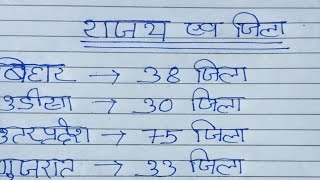 राज्य एव जिला
बिहार → 38 जिला
उडीसा → 30 जिला
उतरप्रदेश → 75 जिला
गुजरात → 33 जिला